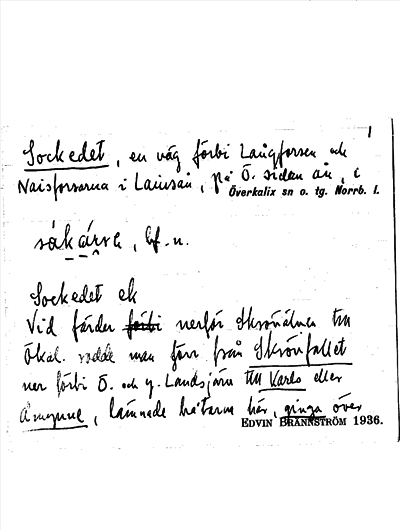 1
Sockedet, en väg förbi Långforsen och
Naisforsarna i Lainsån, på Ö. sidan ån, i
Överkalix sn o. tg. Norrb. l.
bf. n.
Sockedet ek
Vid färder förbi nerför till
Ökal. rodde man förr från Skrönfallet
ner förbi Ö. och y. Landsjärv till eller
lämnade båtarna här, gingo över
EDVIN BRÄNNSTRÖM 1936.